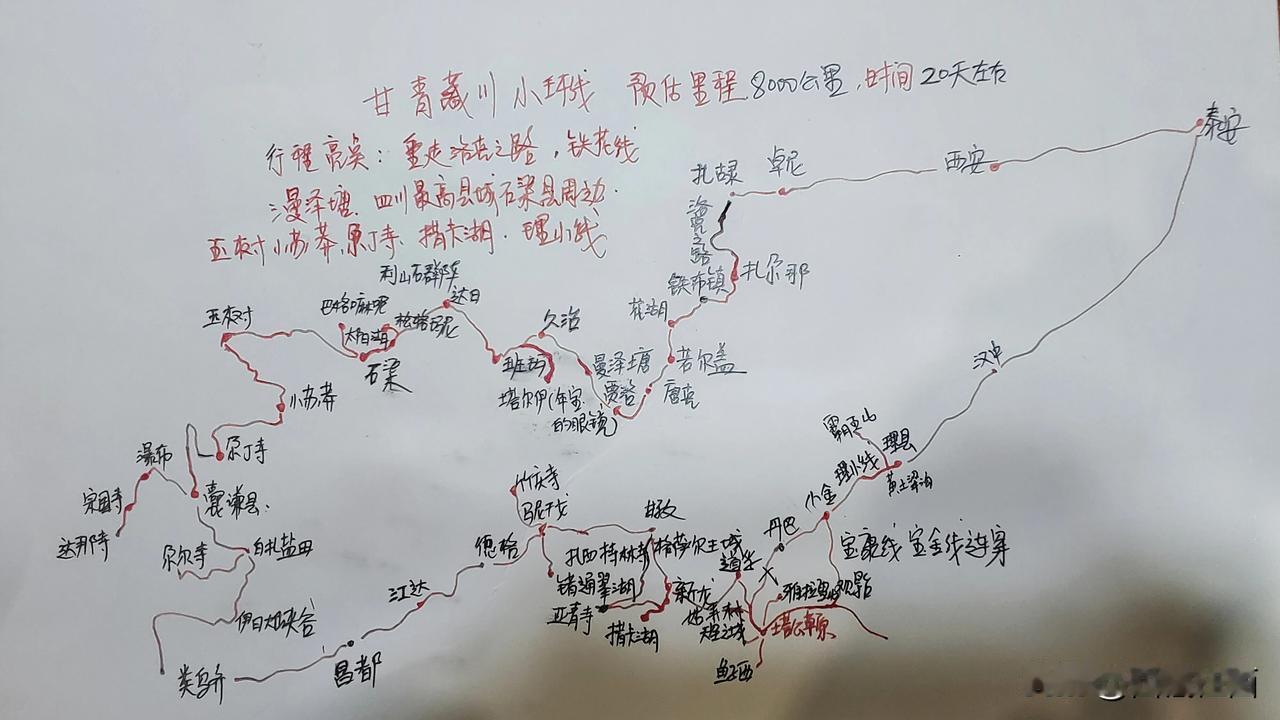 甘青藏川小环线 预估里程8000公里,时间20天左右
行程亮点:重走洛克之路,铁花线
漫泽塘、四川最高县城石渠县周边.
玉树小苏莽.尕丁寺、措卡湖.理小线
泰安
西安
卓尼
扎古录
洛克之路
扎尕那
铁布镇
花湖
若尔盖
唐克
曼泽塘
贾洛
久治
班玛
塔尔伊(年宝的眼镜)
达日
石渠
松格玛尼
太阳湖
巴格嘛呢
玉树
小苏莽
尕丁寺
囊谦县.
瀑布
宗国寺
达那寺
尕尔寺
白扎盐田
类乌齐
昌都
江达
德格
马尼干戈
竹庆寺
甘孜
扎西持林寺
格萨尔王城
错通翠湖
亚青寺
新龙
措卡湖
道孚
丹巴
小金
理小线
理县
汉中
宝康线宝金线连穿
雅拉雪山观影
塔公草原
鱼子西